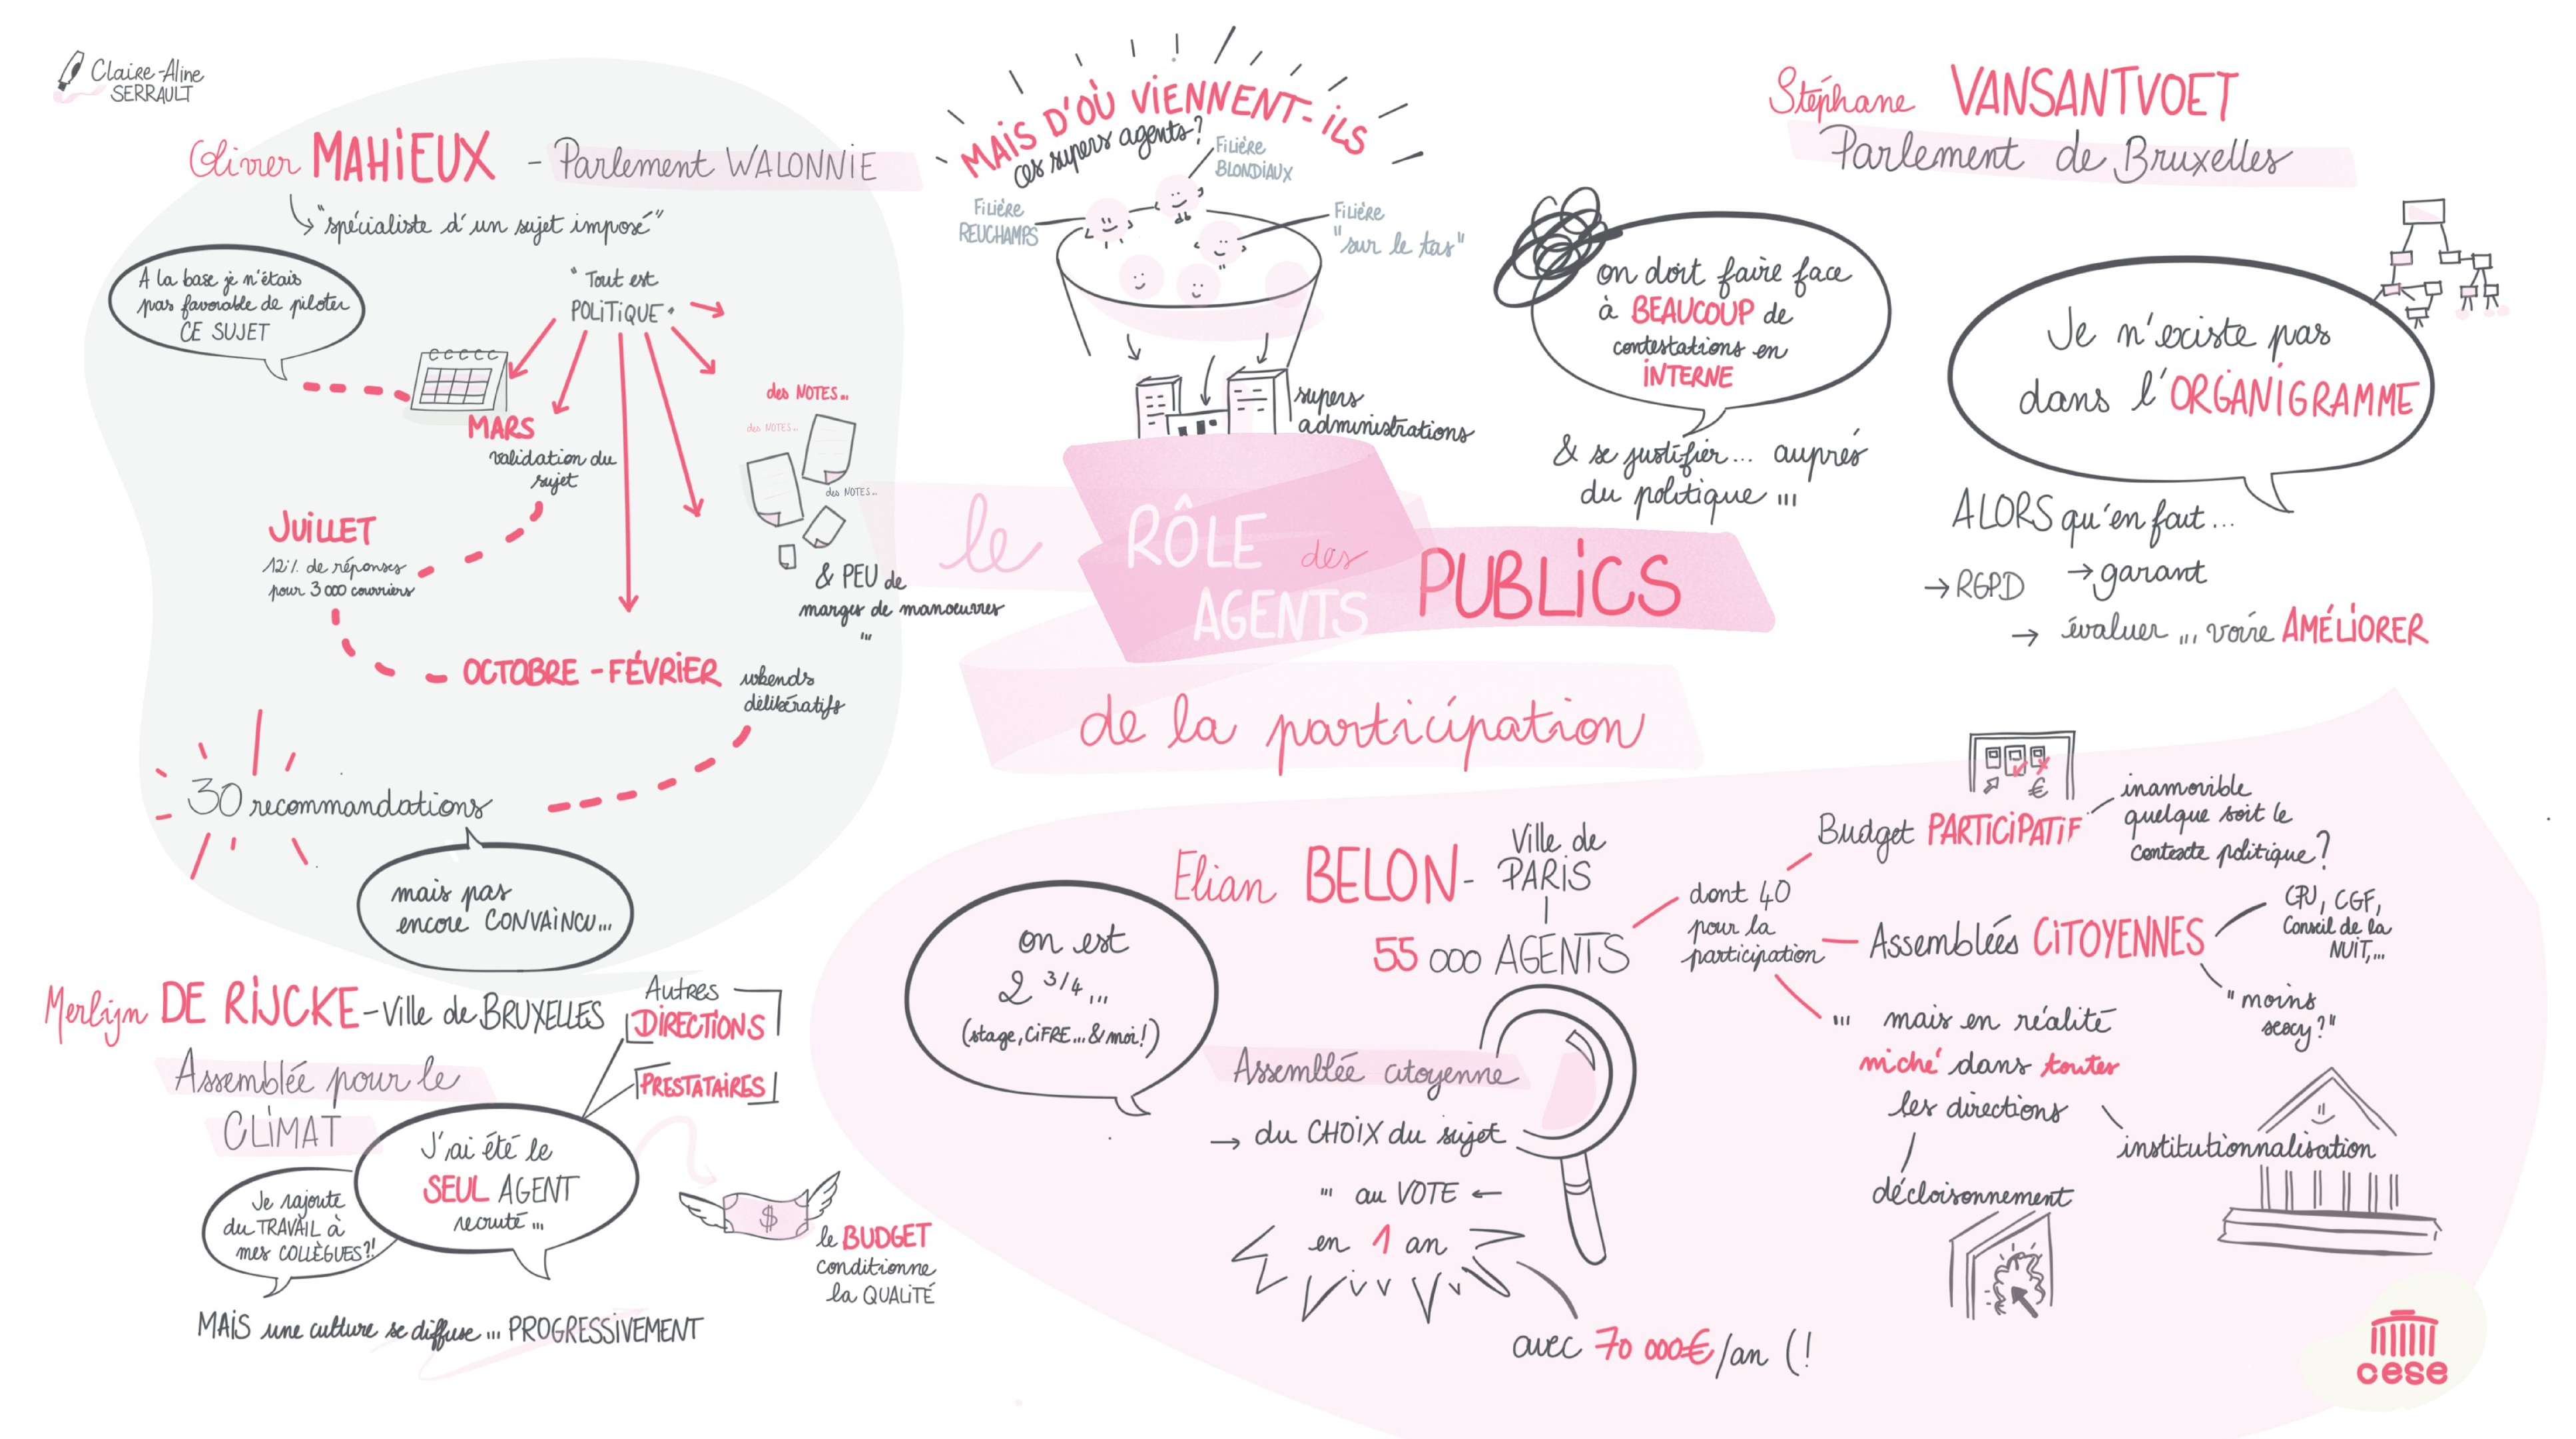 Claire-Aline
SERRAULT
Olivier MAHIEUX - Parlement WALONNIE
"spécialiste d'un sujet imposé"
A la base je n'étais
pas favorable de piloter
CE SUJET
"Tout est
POLITIQUE"
MARS
validation du
sujet
JUILLET
12% de réponses
pour 3 000 courriers
OCTOBRE - FÉVRIER
wkends
délibératifs
30 recommandations
mais pas
encore CONVAINCU...
des NOTES...
des NOTES...
des NOTES...
& PEU de
marges de manoeuvres
...
MAIS D'OÙ VIENNENT-ILS
ces supers agents?
Filière
BLONDIAUX
Filière
REUCHAMPS
Filière
"sur le tas"
supers
administrations
le RÔLE des
AGENTS PUBLICS
de la participation
Stéphane VANSANTVOET
Parlement de Bruxelles
on doit faire face
à BEAUCOUP de
contestations en
INTERNE
& se justifier... auprès
du politique ...
Je n'existe pas
dans l'ORGANIGRAMME
ALORS qu'en fait...
→ RGPD
→ garant
→ évaluer ... voire AMÉLIORER
Merlijn DE RIJCKE - Ville de BRUXELLES
Assemblée pour le
CLIMAT
Autres
DIRECTIONS
PRESTATAIRES
J'ai été le
SEUL AGENT
recruté...
Je rajoute
du TRAVAIL à
mes COLLÈGUES?!
MAIS une culture se diffuse... PROGRESSIVEMENT
$
le BUDGET
conditionne
la QUALITÉ
Elian BELON - Ville de
PARIS
55 000 AGENTS
on est
2 3/4...
(stage, CIFRE... & moi!)
Assemblée citoyenne
→ du CHOIX du sujet
... au VOTE ←
en 1 an
avec 70 000€/an (!
dont 40
pour la
participation
Budget PARTICIPATIF
€
inamovible
quelque soit le
contexte politique?
Assemblées CITOYENNES
CPJ, CGF,
Conseil de la
NUIT,...
"moins
sexy?"
... mais en réalité
niché dans toutes
les directions
décloisonnement
institutionnalisation
cese